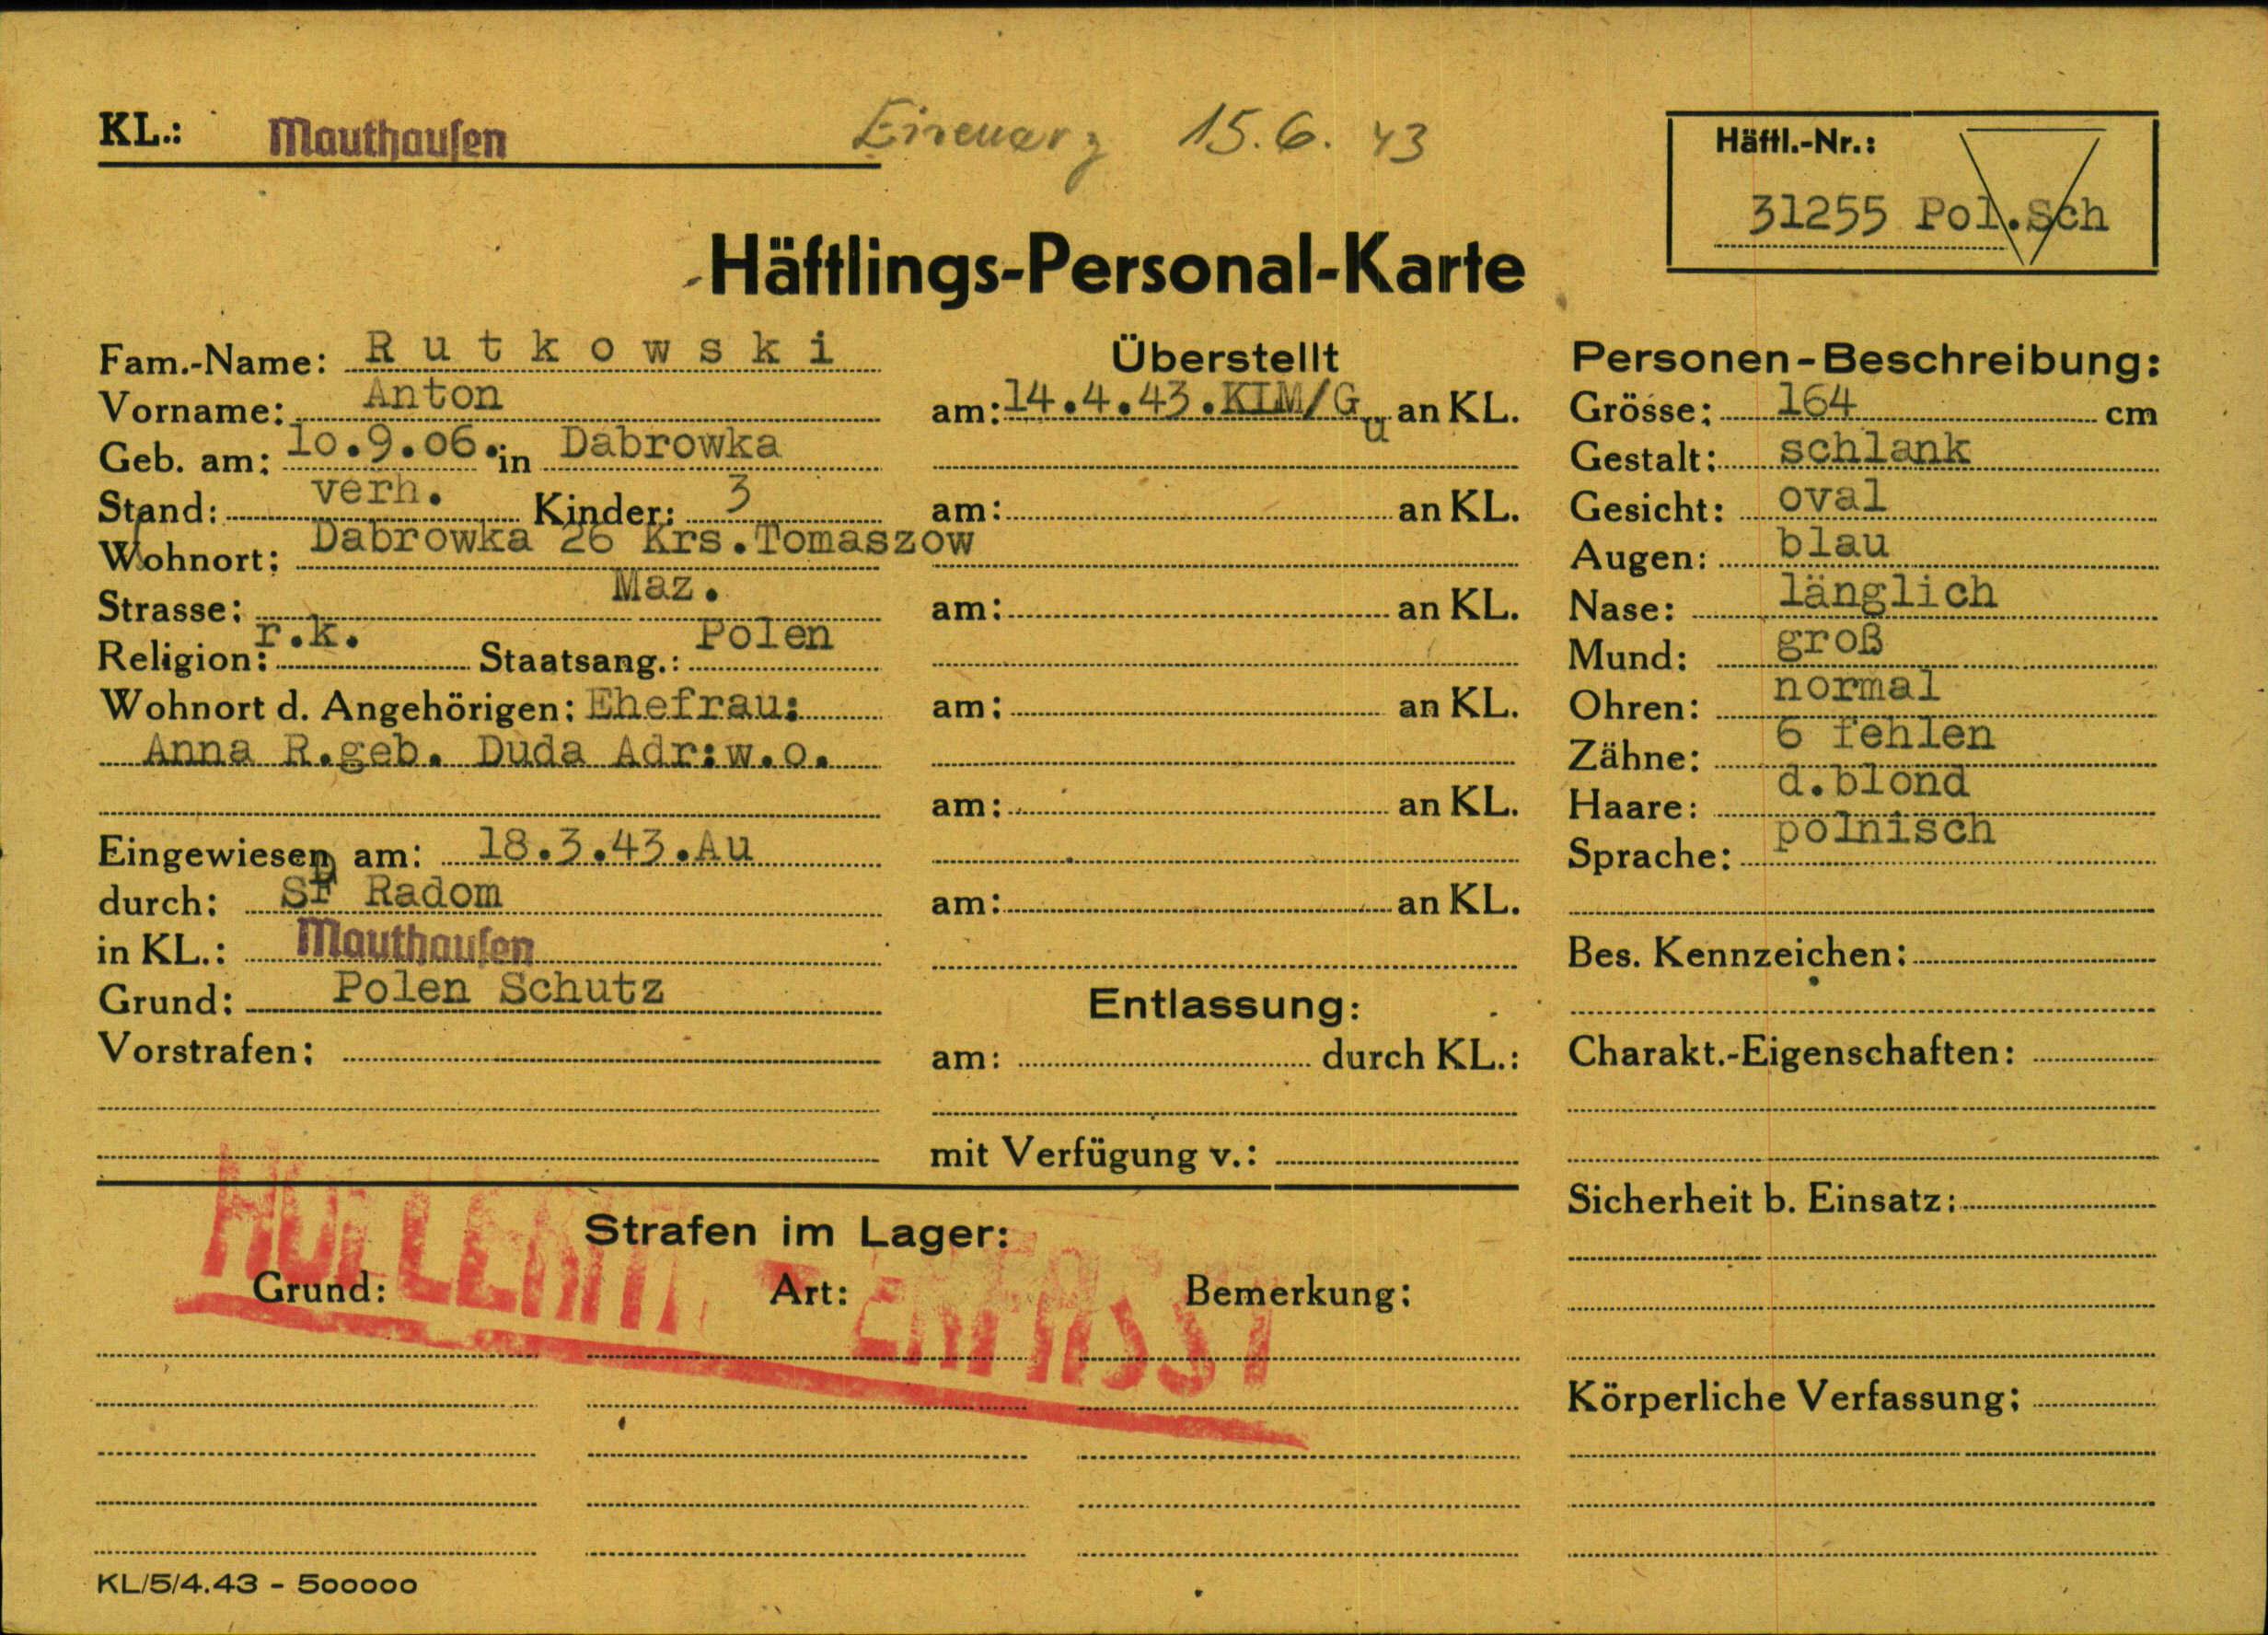 KL.: Mauthausen
Eisenerz 15.6.43
Häftl.-Nr.:
31255 Pol.Sch
Häftlings-Personal-Karte
Fam.-Name: Rutkowski
Vorname: Anton
Geb. am: 10.9.06. in Dabrowka
Stand: verh. Kinder: 3
Wohnort: Dabrowka 26 Krs.Tomaszow
Strasse: Maz.
Religion: r.k. Staatsang.: Polen
Wohnort d. Angehörigen: Ehefrau:
Anna R.geb. Duda Adr:w.o.
Eingewiesen am: 18.3.43.Au
durch: SP Radom
in KL.: Mauthausen
Grund: Polen Schutz
Vorstrafen:
Überstellt
am: 14.4.43.KLM/Gu an KL.
am: an KL.
am: an KL.
am: an KL.
am: an KL.
am: an KL.
Entlassung:
am: durch KL.:
mit Verfügung v.:
Personen-Beschreibung:
Grösse: 164 cm
Gestalt: schlank
Gesicht: oval
Augen: blau
Nase: länglich
Mund: groß
Ohren: normal
Zähne: 6 fehlen
Haare: d.blond
Sprache: polnisch
Bes. Kennzeichen:
Charakt.-Eigenschaften:
Sicherheit b. Einsatz:
Körperliche Verfassung:
Strafen im Lager:
Grund: Art: Bemerkung:
HOLLERITH ERFASST
KL/5/4.43 - 500000